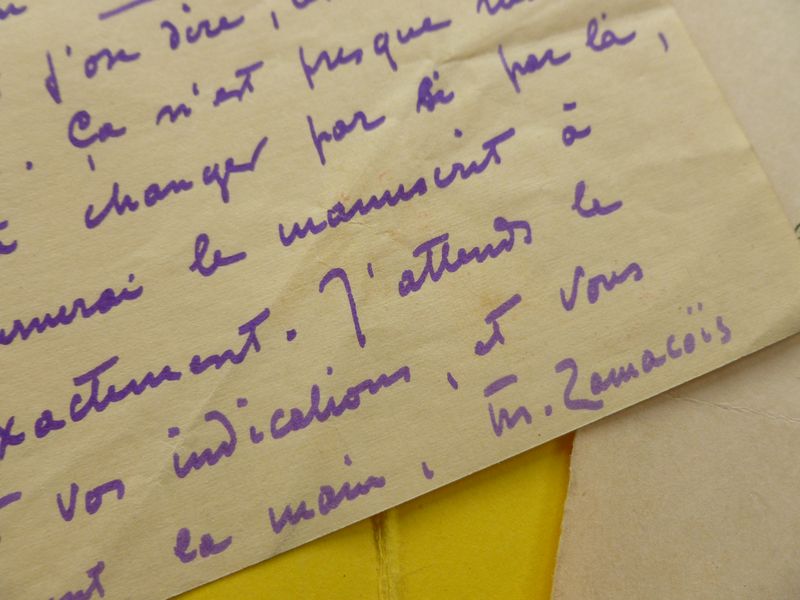 j'ose dire,
. Ça n'est presque
changer par ci par là,
le manuscrit à
exactement. J'attends le
vos indications, et vous
la main, M. Zamacoïs